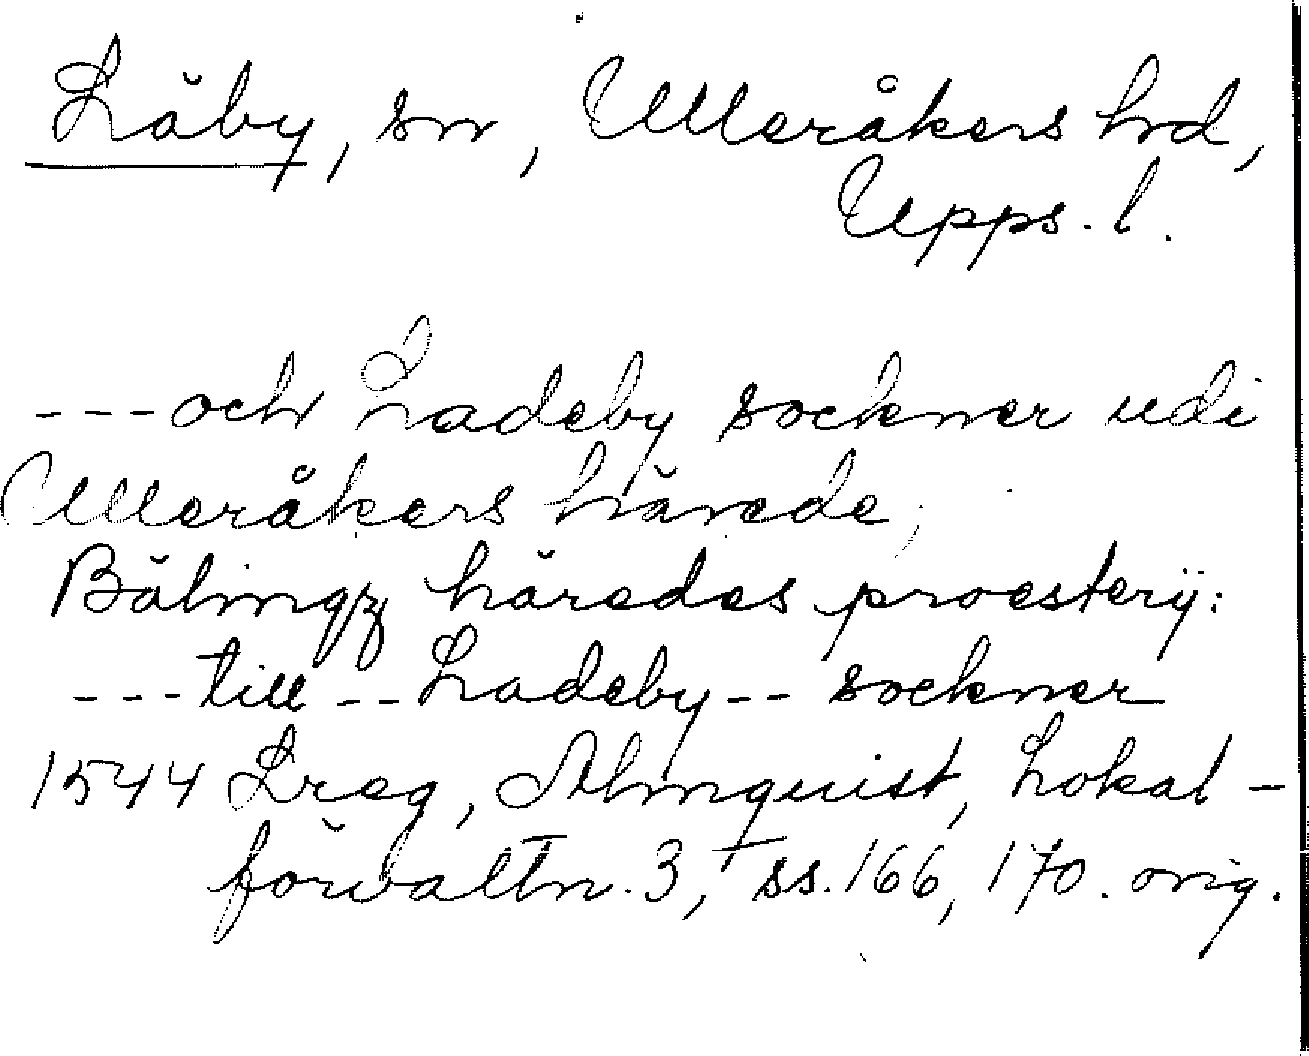 Läby, sn, Ulleråkers hrd,
Upps. l.
---och Ladeby sockner udi
Ulleråkers härede;
Bälingz häredes proesterij:
---till--Ladeby--sockner
1544 Lreg, Almquist, Lokal-
förvaltn. 3, ss. 166, 170. orig.